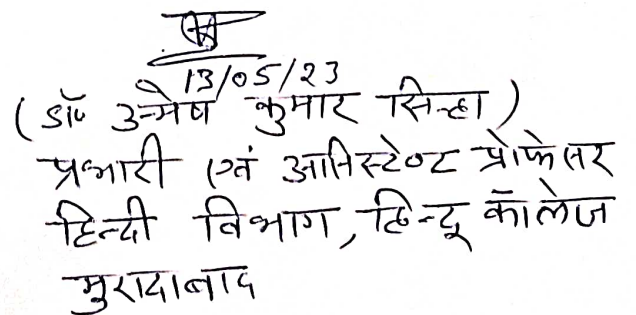 13/05/23
(डॉ० उन्मेष कुमार सिन्हा)
प्रभारी एवं आसिस्टेण्ट प्रोफेसर
हिन्दी विभाग, हिन्दू कॉलेज
मुरादाबाद